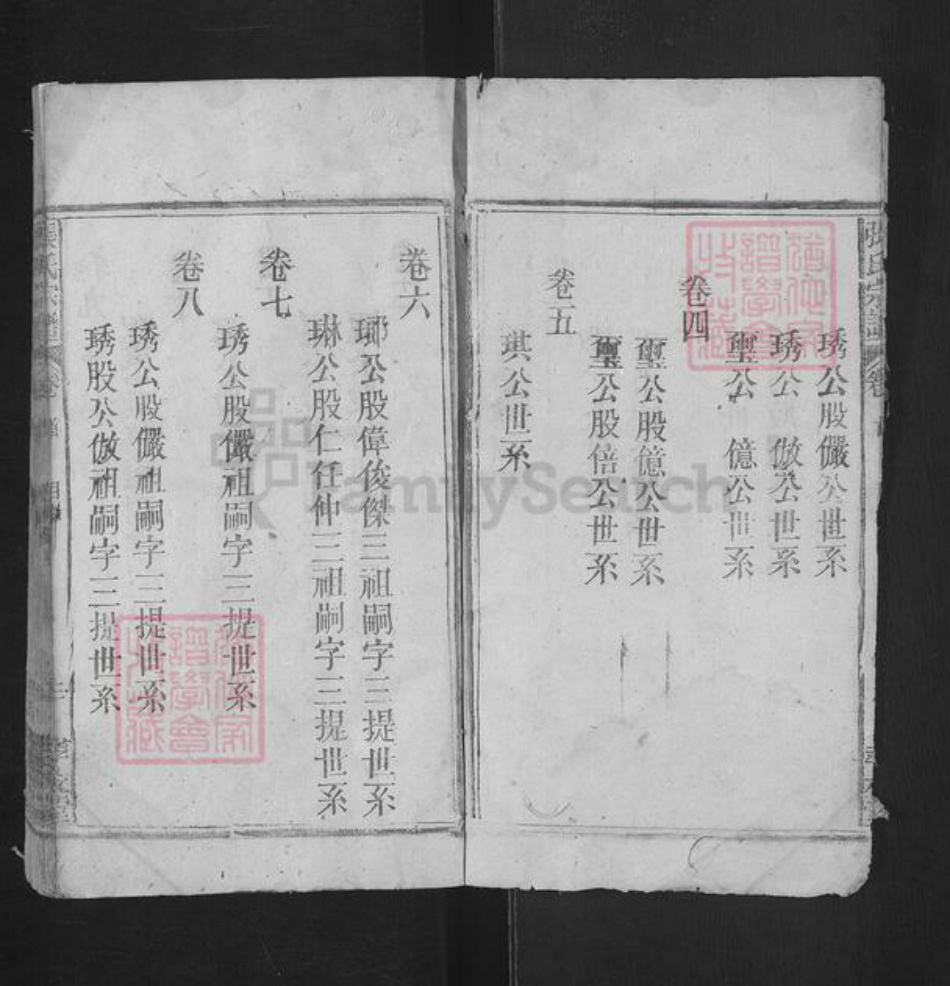 張氏宗譜
琇公股儼公世系
琇公 倣公世系
璽公 億公世系
卷四
璽公股億公世系
璽公股倍公世系
卷五
琪公世系
卷六
瑯公股偉俊傑三祖嗣字三提世系
琳公股仁任仲三祖嗣字三提世系
卷七
琇公股儼祖嗣字三提世系
卷八
琇公股儼祖嗣字三提世系
琇股公倣祖嗣字三提世系
張氏宗譜
FamilySearch